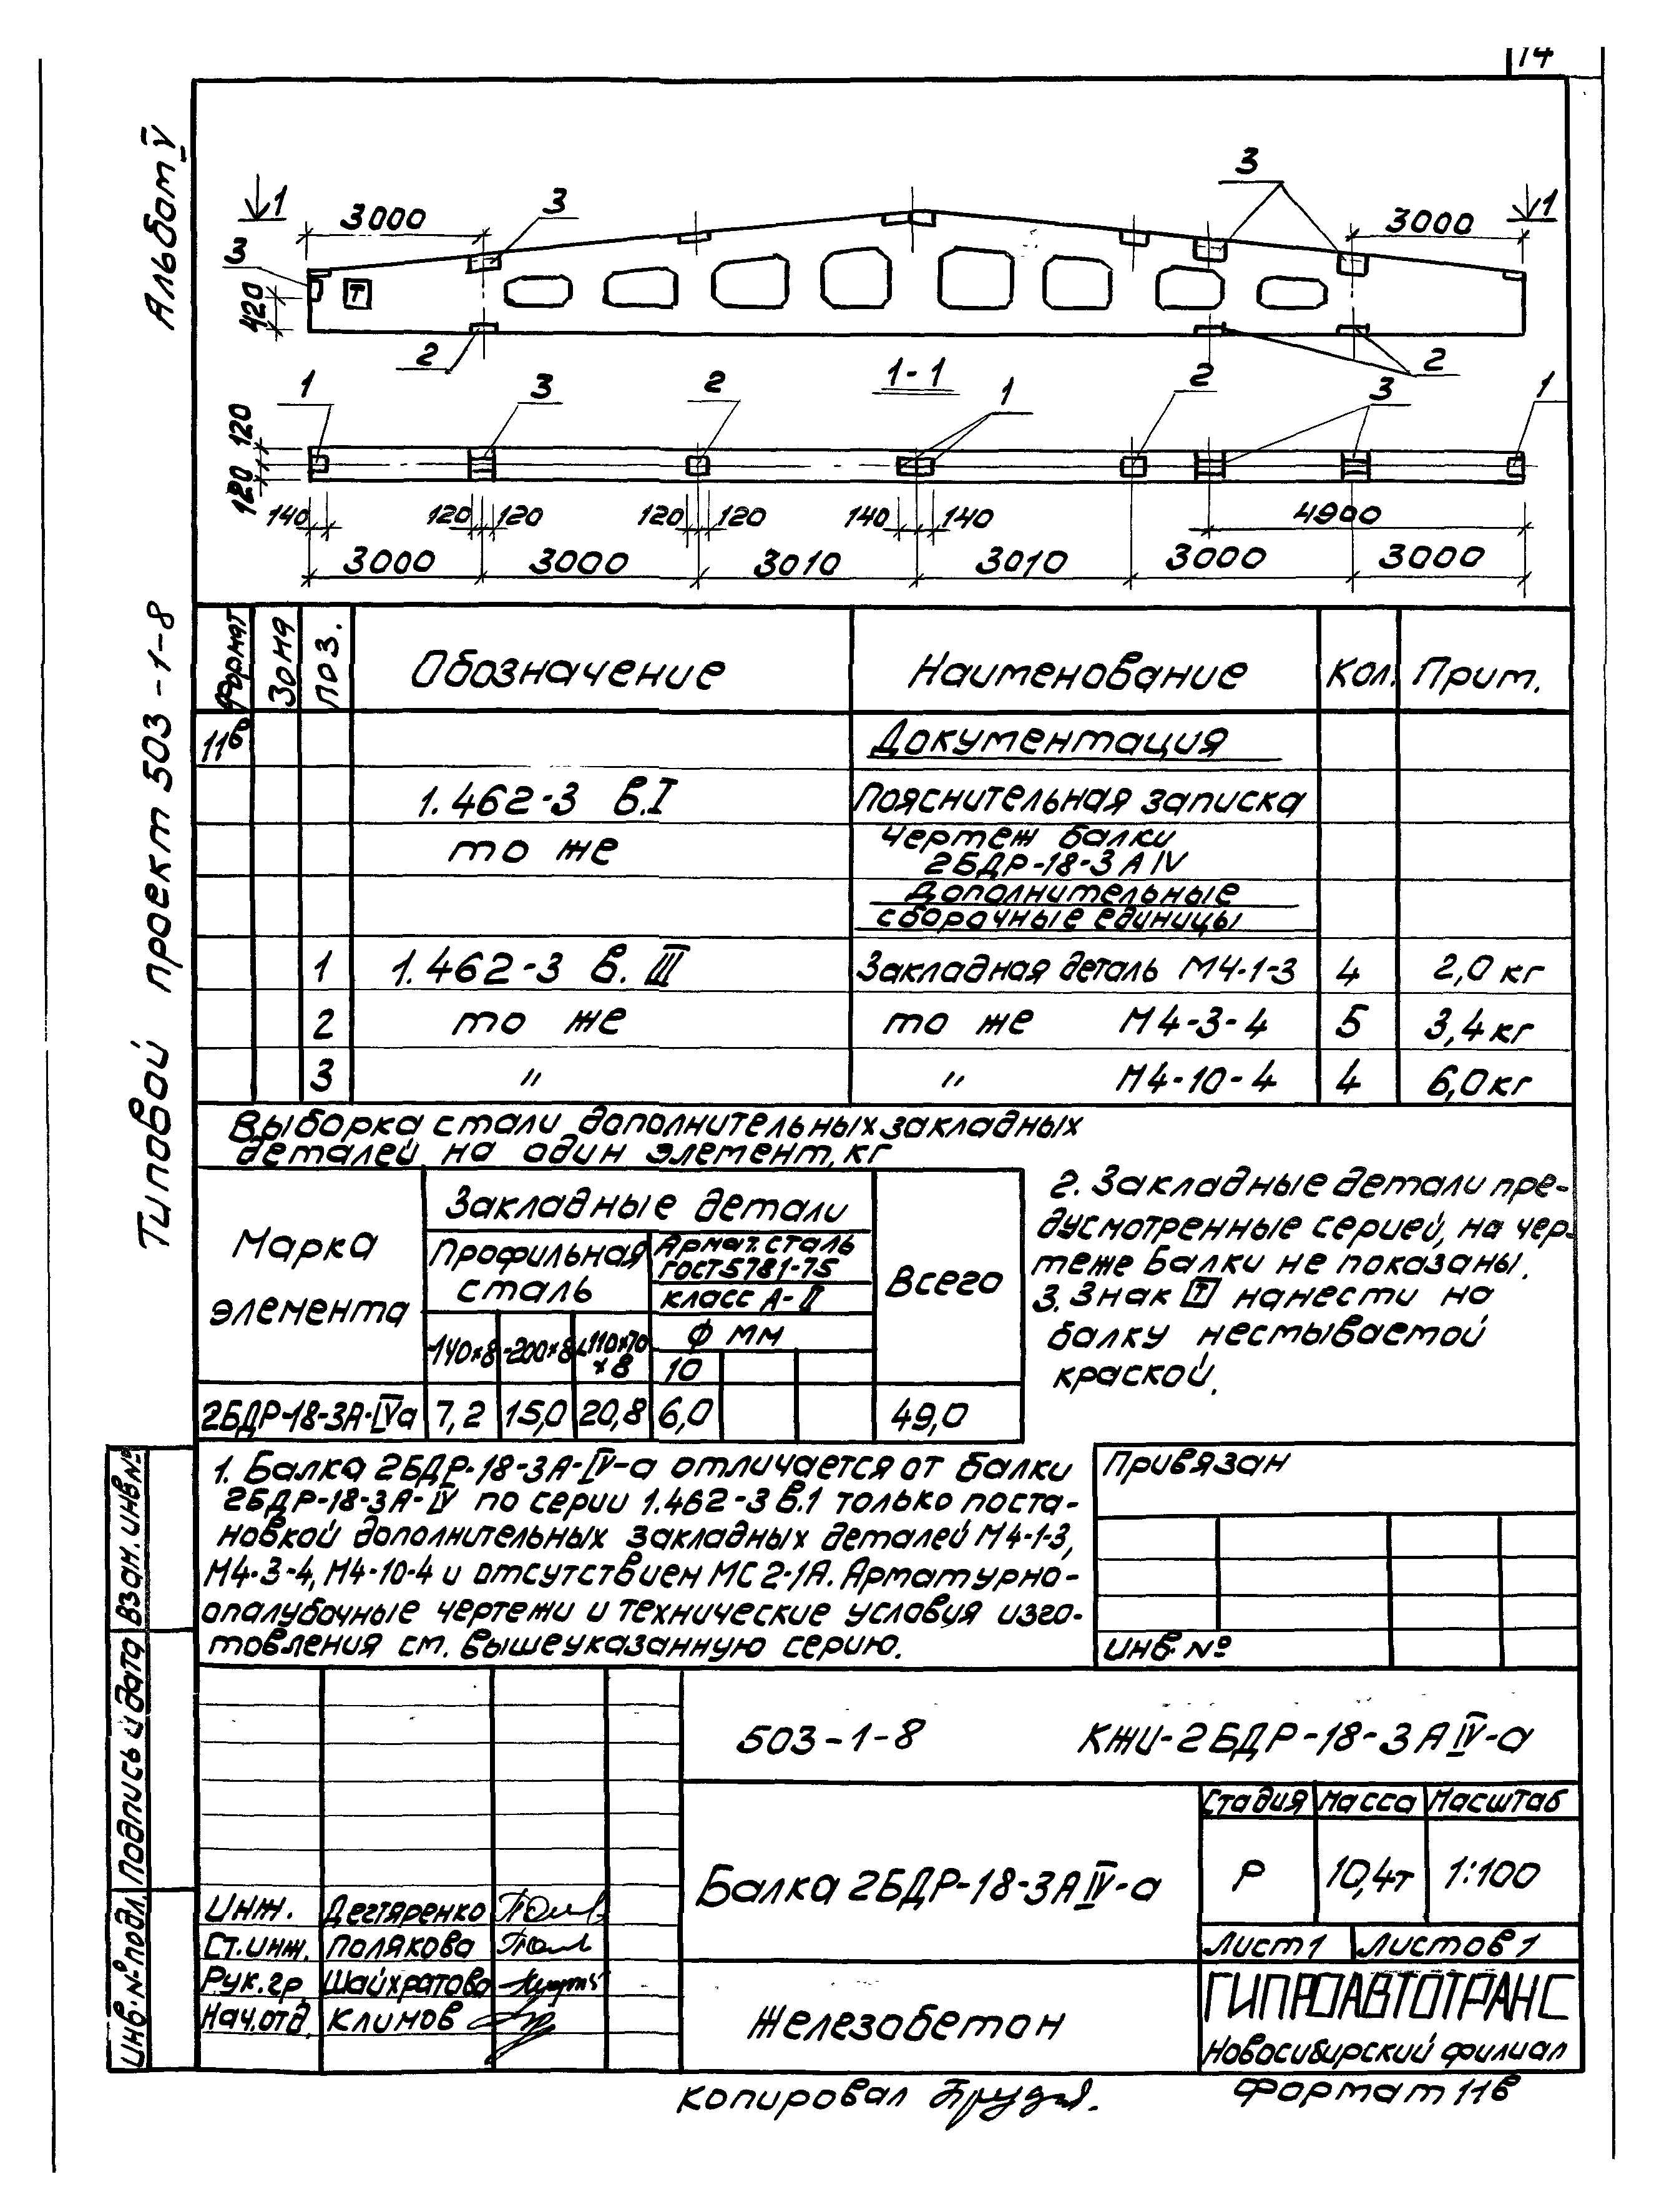 14
Альбом V
Типовой проект 503-1-8
3
1
3000
3
3000
1
3
Т
420
2
2
1-1
1
3
2
1
2
3
1
120
120
140
120 120
120 120
140 140
4900
3000 3000 3010 3010 3000 3000
Формат Зона Поз. Обозначение Наименование Кол. Прим.
11в Документация
1.462-3 В.I Пояснительная записка
то же Чертеж балки
2БДР-18-3 А IV
Дополнительные
сборочные единицы
1 1.462-3 в. III Закладная деталь М4-1-3 4 2,0 кг
2 то же то же М4-3-4 5 3,4 кг
3 " " М4-10-4 4 6,0 кг
Выборка стали дополнительных закладных
деталей на один элемент, кг
Марка
элемента
Закладные детали
Профильная
сталь
Армат. сталь
ГОСТ 5781-75
класс А-II
Ф мм
Всего
-140×8 -200×8 ∠110×70
×8
10
2БДР-18-3А-IVа 7,2 15,0 20,8 6,0 49,0
2. Закладные детали пре-
дусмотренные серией, на чер-
теже балки не показаны.
3. Знак Т нанести на
балку несмываемой
краской.
1. Балка 2БДР-18-3А-IV-а отличается от балки
2БДР-18-3А-IV по серии 1.462-3 В.1 только поста-
новкой дополнительных закладных деталей М4-1-3,
М4-3-4, М4-10-4 и отсутствием МС2-1А. Арматурно-
опалубочные чертежи и технические условия изго-
товления см. вышеуказанную серию.
Привязан
инв. №
Взам. инв. №
Подпись и дата
Инв. № подл.
503-1-8 КЖИ-2БДР-18-3 А IV-а
Балка 2БДР-18-3А IV-а
Стадия Масса Масштаб
Р 10,4т 1:100
Лист 1 Листов 1
Инж. Дегтяренко
Ст. инж. Полякова
Рук. гр. Шайхратова
Нач. отд. Климов
Железобетон
ГИПРОАВТОТРАНС
Новосибирский филиал
Копировал
Формат 11в